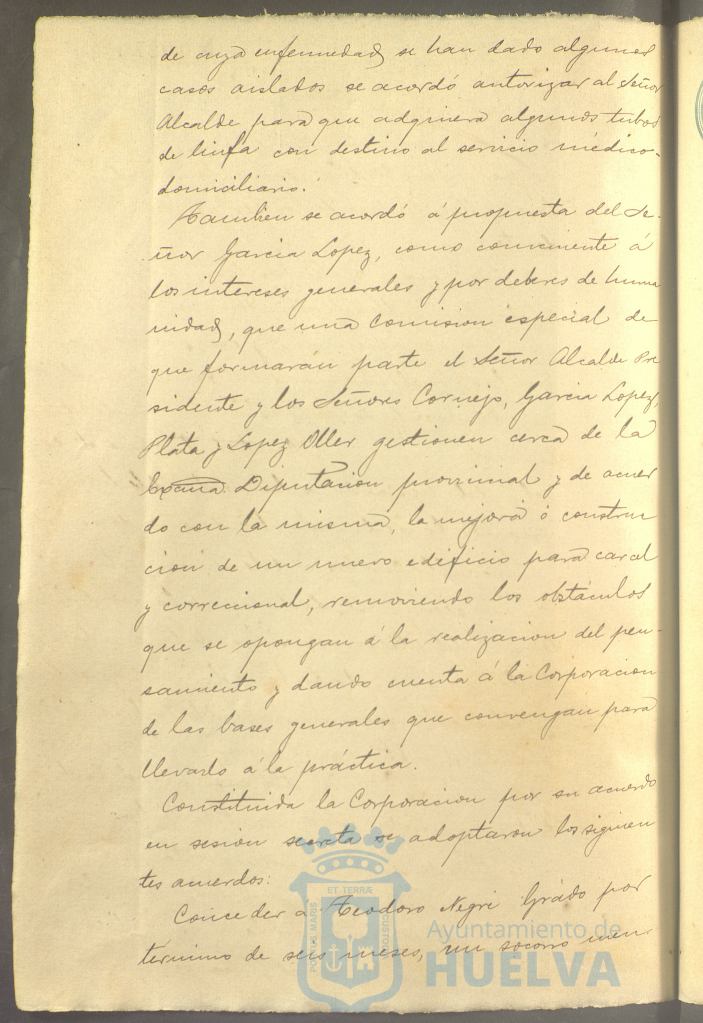 de cuya enfermedad se han dado algunos
casos aislados se acordó autorizar al Señor
Alcalde para que adquiera algunos tubos
de linfa con destino al servicio médico-
domiciliario.
Tambien se acordó á propuesta del Se-
ñor Garcia Lopez, como conveniente á
los intereses generales y por deberes de huma
nidad, que una Comision especial de
que formarán parte el Señor Alcalde Pre
sidente y los Señores Cornejo, Garcia Lopez,
Plata y Lopez Oller gestionen cerca de la
Excma Diputacion provincial y de acuer
do con la misma, la mejora ó construc
cion de un nuevo edificio para carcel
y correccional, removiendo los obstáculos
que se opongan á la realizacion del pen-
samiento y dando cuenta á la Corporacion
de las bases generales que convengan para
llevarlo á la práctica.
Constituida la Corporacion por su acuerdo
en sesion secreta se adoptaron los siguien
tes acuerdos:
Conceder a Teodoro Negri Grado por
termino de seis meses, un socorro men-
ET TERRÆ
PORTUS MARIS
CUSTODIA
Ayuntamiento de
HUELVA